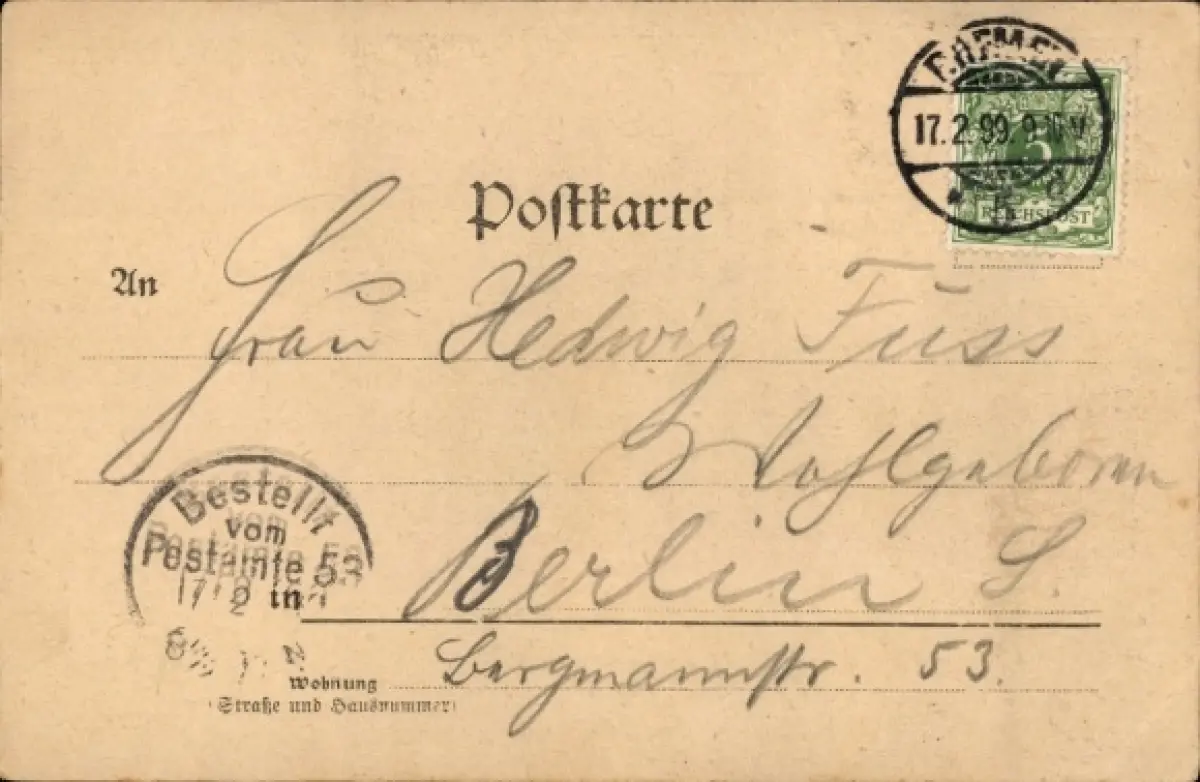 BREMEN
17. 2. 99. 9-10 V
5
REICHSPOST
Postkarte
An Frau Hedwig Fuss
Wohlgeboren
Bestellt
vom
Postamte 53
17 2
in Berlin S.
Wohnung Bergmannstr. 53.
(Straße und Hausnummer)